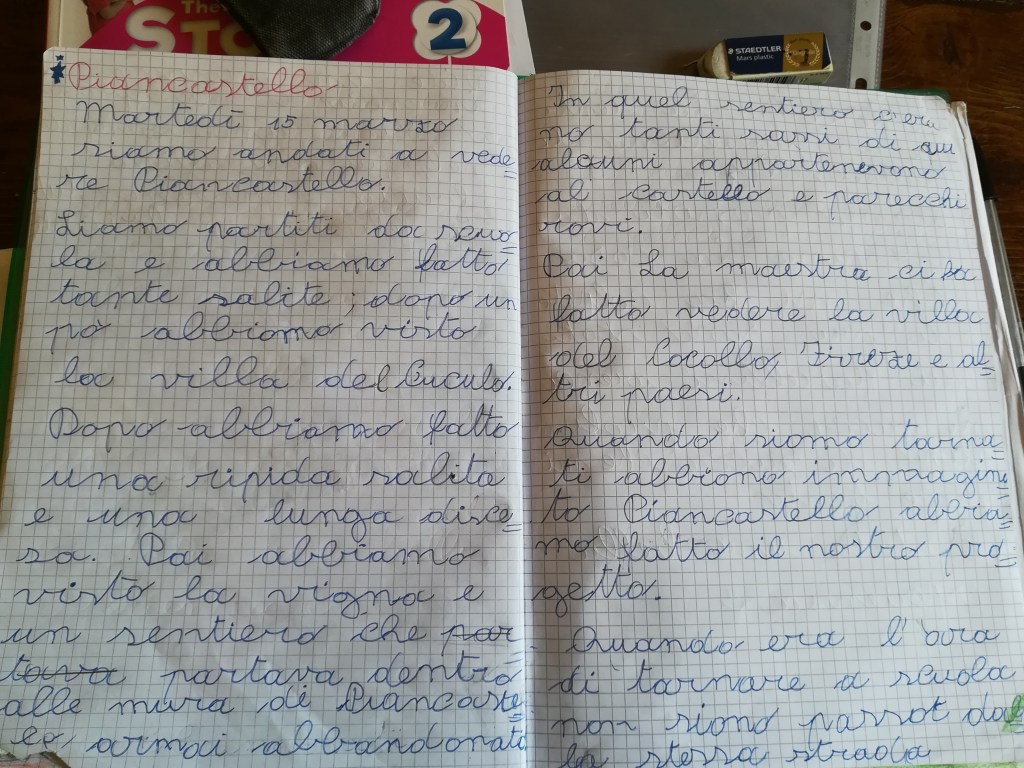 The
STO
2
STAEDTLER
Mars plastic
Piancastello
Martedì 15 marzo
siamo andati a vede=
re Piancastello.
Siamo partiti da scuo=
la e abbiamo fatto
tante salite; dopo un
pò abbiamo visto
la villa del Cuculo.
Dopo abbiamo fatto
una ripida salita
e una lunga disce=
sa. Poi abbiamo
visto la vigna e
un sentiero che por
tava portava dentro
alle mura di Piancaste=
lo ormai abbandonato
In quel sentiero c'era
no tanti sassi di cui
alcuni appartenevono
al castello e parecchi
rovi.
Poi la maestra ci ha
fatto vedere la villa
del Cocollo, Firenze e al=
tri paesi.
Quando siamo torna=
ti abbiamo immagin=
to Piancastello abbia=
mo fatto il nostro pro=
getto.
Quando era l'ora
di tornare a scuola
non siamo passat dal
la stessa strada